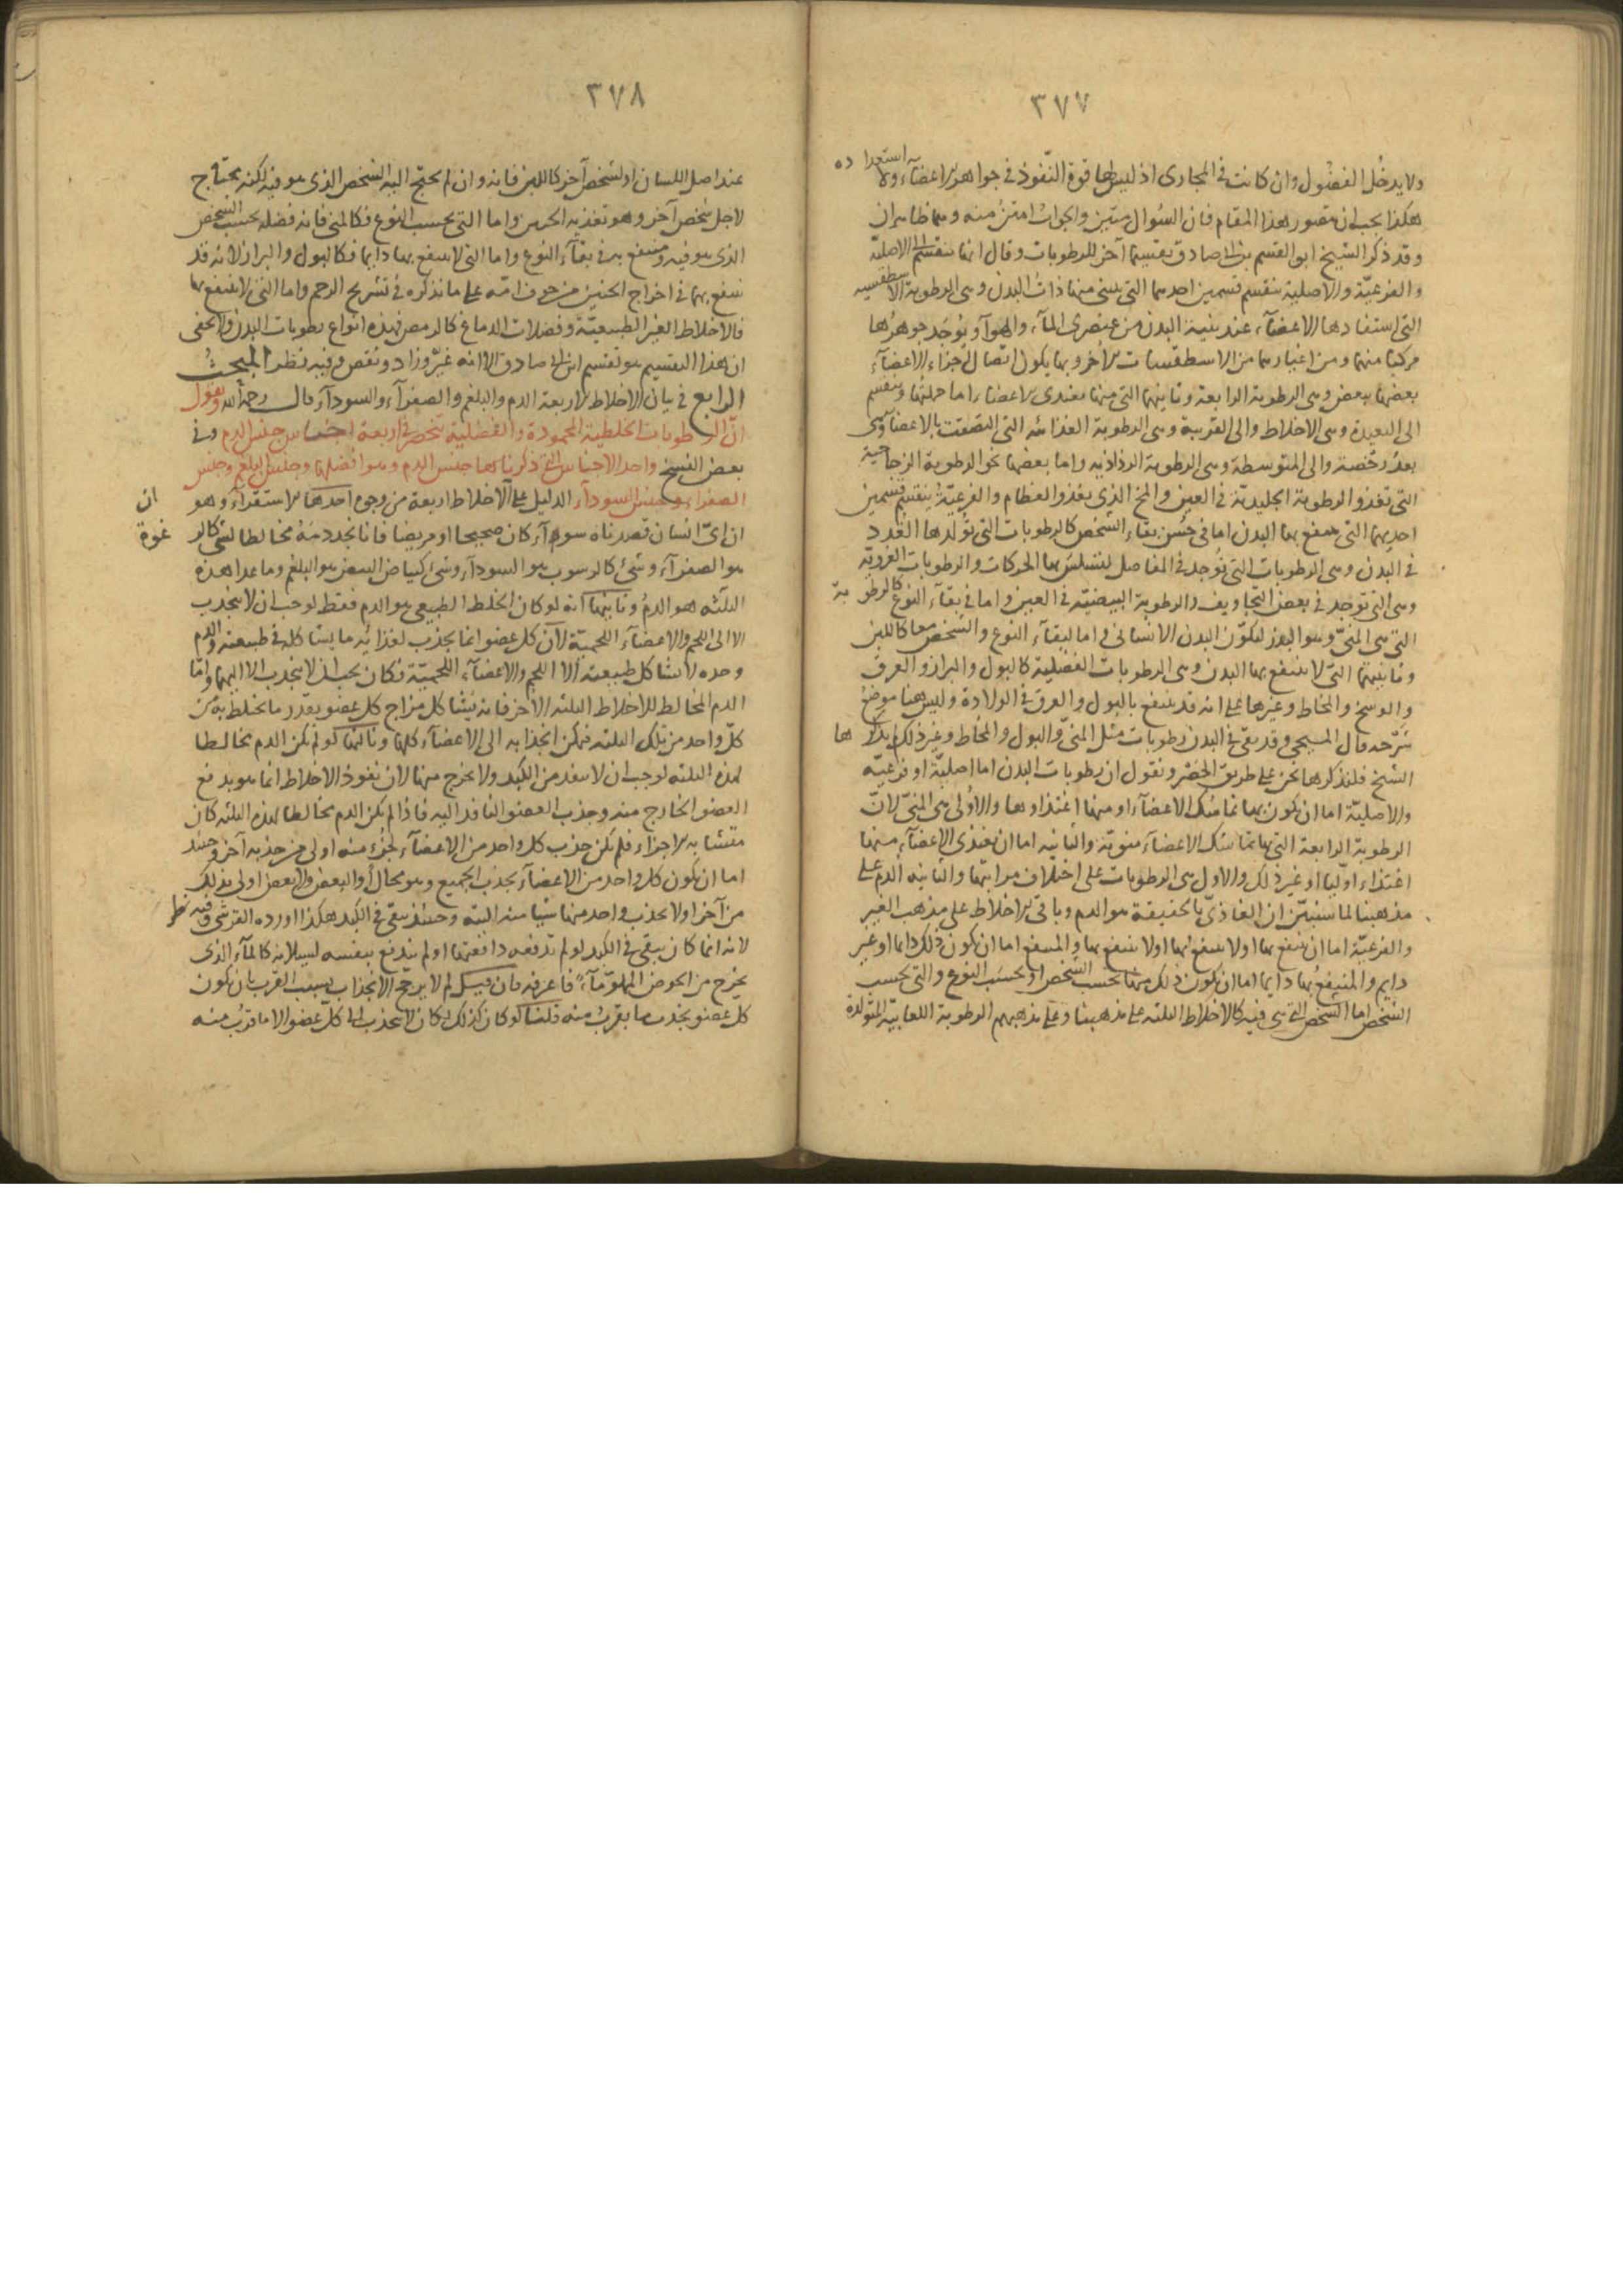 ٣٧٧
ولا يدخل الفضول وان كانت في المجارى اذ ليس لها قوة النفوذ في جواهر الاعضاء ولا استعداده
هكذا يجب ان يتصور هذا المقام فان السؤال متين والجواب امتن منه وهما ظاهران
وقد ذكر الشيخ ابو القسم بن ابى صادق تقسيما آخر للرطوبات وقال انها تنقسم الى الاصلية
والفرعية والاصلية تنقسم قسمين احدهما التى يبنى منها ذات البدن وهى الرطوبة الاسطقسية
التى استفادها الاعضاء عند بنية البدن من عنصرى الماء والهوآ ويوجد جوهرها
مركبا منهما ومن اغيارهما من الاسطقسات الاخر وبها يكون اتصال اجزاء الاعضاء
بعضها ببعض وهى الرطوبة الرابعة وثانيهما التى منها تغتذى الاعضاء اما جملتها وينقسم
الى البعيدة وهى الاخلاط والى القريبة وهى الرطوبة الغذائية التى التصقت بالاعضاء وهى
بعد رخصة والى المتوسطة وهى الرطوبة الرذاذية واما بعضها نحو الرطوبة الزجاجية
التى تغذو الرطوبة الجليدية في العين والمخ الذى يغذو العظام والفرعية ينقسم قسمين
احديهما التى ينتفع بها البدن اما في حسن بقاء الشخص كالرطوبات التى تولدها الغدد
في البدن وهى الرطوبات التى توجد في المفاصل لتسلس بها الحركات والرطوبات الغروية
وهى التى توجد في بعض التجاويف والرطوبة البيضية في العين واما في بقاء النوع كالرطوبة
التى هى المنى وهو البذر لتكون البدن الانسانى واما لبقاء النوع والشخص معا كاللبن
وثانيتهما التى لا ينتفع بها البدن وهى الرطوبات الفضلية كالبول والبراز والعرق
والوسخ والمخاط وغيرها على انه قد ينتفع بالبول والعرق في الولادة وليس هنا موضع
شرحه قال المسيحى وقد بقى في البدن رطوبات مثل المنى والبول والمخاط وغير ذلك لم يذكرها
الشيخ فلنذكرها نحن على طريق الحصر ونقول ان رطوبات البدن اما اصلية او فرعية
والاصلية اما ان يكون بها تماسك الاعضاء او منها اغتذاوها والاولى هى المنى لان
الرطوبة الرابعة التى بها تماسك الاعضاء منوية والثانية اما ان يغتذى الاعضاء منها
اغتذاء اوليا او غير ذلك والاول هى الرطوبات على اختلاف مراتبها والثانية الدم على
مذهبنا لما سنبين ان الغاذى بالحقيقة هو الدم وباقى الاخلاط على مذهب الغير
والفرعية اما ان ينتفع بها او لا ينتفع بها والمنتفع اما ان يكون ذلك دايما او غير
دايم والمنتفع بها دايما اما ان يكون ذلك منها بحسب الشخص او بحسب النوع والتى بحسب
الشخص اما الشخص التى هى فيه كالاخلاط الثلثه على مذهبنا وعلى مذهبهم الرطوبة اللعابية المتولدة
٣٧٨
عند اصل اللسان او لشخص آخر كاللبن فانه وان لم يحتج اليه الشخص الذى هو فيه لكنه يحتاج
لاجل شخص آخر وهو تغذيه الجنين واما التى بحسب النوع فكالمنى فانه فضله بحسب الشخص
الذى هو فيه ومنتفع به في بقاء النوع واما التى لا ينتفع بها دايما فكالبول والبراز لانه قد
ينتفع بهما في اخراج الجنين من جوف امه على ما نذكره في تشريح الرحم واما التى لا ينتفع بها
فالاخلاط الغير الطبيعية وفضلات الدماغ كالرمص فهذه انواع رطوبات البدن ولا يخفى
ان هذا التقسيم هو تقسيم ابن ابى صادق الا انه غير وزاد ونقص وفيه نظر المبحث
الرابع في بيان الاخلاط الاربعة الدم والبلغم والصفرآء والسودآء قال رحمه الله ونقول
ان الرطوبات الخلطية المحمودة والفضلية تنحصر في اربعة اجناس جنس الدم وفي
بعض النسخ واحد الاجناس التى ذكرناها جنس الدم وهو افضلها وجنس البلغم وجنس
الصفراء وجنس السودآء الدليل على ان الاخلاط اربعة من وجوه احدها الاستقرآء وهو
ان اى انسان فصدناه سوآء كان صحيحا او مريضا فانا نجد دمه مخالطا لشى كالرغوة
هو الصفرآء وشئ كالرسوب هو السودآء وشئ كبياض البيض هو البلغم وما عدا هذه
الثلثه هو الدم وثانيها انه لو كان الخلط الطبيعى هو الدم فقط لوجب ان لا ينجذب
الا الى اللحم والاعضآء اللحمية لان كل عضو انما يجذب لغذائه ما يشاكله في طبيعته والدم
وحده لا يشاكل طبيعته الا اللحم والاعضآء اللحمية فكان يجب ان لا ينجذب الا اليهما واما
الدم المخالط للاخلاط الثلثه الاخر فانه يشاكل مزاج كل عضو بقدر ما يختلط به من
كل واحد من تلك الثلثه فيمكن انجذابه الى الاعضآء كلها وثالثها لو لم يكن الدم مخالطا
لهذه الثلثه لوجب ان لا ينفذ من الكبد ولا يخرج منها لان نفوذ الاخلاط انما هو بدفع
العضو الخارج منه وجذب العضو النافذ اليه فاذا لم يكن الدم مخالطا لهذه الثلثه كان
متشابه الاجزاء فلم يكن جذب كل واحد من الاعضآء لجزء منه اولى من جذبه آخر وحينئذ
اما ان يكون كل واحد من الاعضآء يجذب الجميع وهو محال او البعض والبعض اولى بذلك
من آخر او لا يجذب واحد منها شيئا منه البته وحينئذ يبقى في الكبد هكذا اورده القرشى وفيه نظر
لانه انما كان يبقى في الكبد لو لم تدفعه دافعتها او لم يندفع بنفسه لسيلانه كالمآء الذى
يخرج من الحوض المملو مآء فاعرفه فان قيل لم لا يرجح الانجذاب بسبب القرب بان يكون
كل عضو يجذب ما يقرب منه قلنا لو كان كذلك لكان لا يجذب الى كل عضو الا ما قرب منه